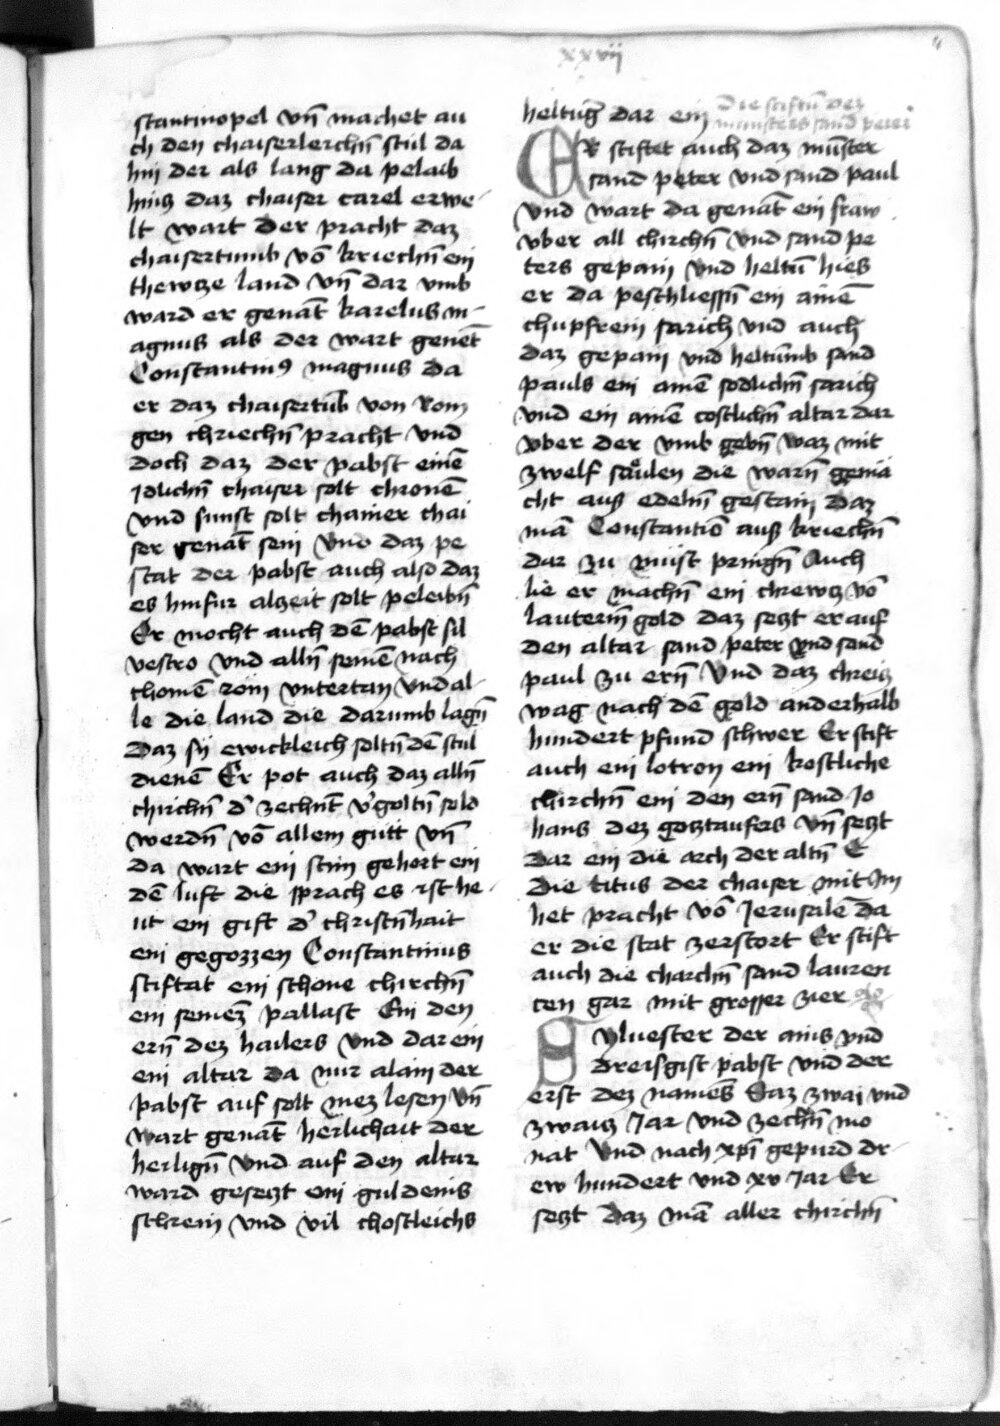 xxvij
stantinopel vn̄ machet au
ch den chaiserlerchn̄ stůl da
hin der als lang da pelaib
hincz daz chaiser carel erwe-
lt wart der pracht daz
chaisertumb võ kriechn̄ ein
thewtze land vn̄ dar vmb
ward er genãt karelus m-
agnus als der wart genẽt
Constantinꝰ magnus da
er daz chaisertūb von Rom
gen chriechn̄ pracht vnd
doch daz der pabst einẽ
jdlichn̄ chaiser solt chronẽ
vnd sunst solt chainer chai
ser genãt sein vnd daz pe
stat der pabst auch also daz
es hinfur alzeit solt peleibn̄
Er mocht auch dẽ pabst sil
vestro vnd alln̄ seinẽ nach
chomẽ rom vntertan vnd al-
le die land die darumb lagn̄
Daz sy ewickleich soltn̄ dẽ stul
dienẽ Er pot auch daz alln̄
chirchn̄ d̾ zechnt̄ v̾goltn̄ sold
werdn̄ võ allem gutt vn̄
da wart ein stim gehort ein
dẽ luft die sprach es ist he-
ut ein gift d̾ christn̄hait
ein gegozzen Constantinus
stiftat ein schone chirchn̄
ein seinez̄ pallast Ein den
ern̄ dez hailers vnd dar ein
ein altar da nur alain der
pabst auf solt mez lesen vn̄
wart genãt herlichait der
herlign̄ vnd auf den altar
ward gesetzt ein guldenis
schrein vnd vil chostleichs
heltūg̃ dar ein
Die stiftũ dez
munsters sand peter
ER stiftet auch daz mūster
sand peter vnd sand paul
vnd wart da genãt ein fraw
vber all chirchn̄ vnd sand pe
ters gepain vnd heltū hies
er da peschliessn̄ ein ainẽ
chupfrein sarich vnd auch
daz gepain vnd heltūmb sand
pauls ein ainẽ sodlichn̄ sarich
vnd ein ainẽ costlichn̄ altar dar
vber der vmb gebn̄ waz mit
zwelf saůlen die warn̄ gema
cht auß edelm̄ gestain daz
mã Constantio auß kriechn̄
dar zu must pringn̄ Auch
lie er machn̄ ein chrewtz võ
lauterm̄ gold daz setzt er auf
den altar sand peter vnd sand
paul zu ern̄ Vnd daz chreitz
wag nach dẽ gold anderhalb
hundert pfund schwer Er stift
auch ein lotron ein kostliche
chirchn̄ ein den ern̄ sand Jo
hans dez gotztaufers vn̄ setzt
dar ein die arch der altn̄ E
die titus der chaiser mit Im
het pracht võ Jerusalẽ da
er die stat zerstort Er stift
auch die charchn̄ sand lauren
cen gar mit grosser zier
Syluester der ains vnd
dreisgist pabst vnd der
erst dez namẽs Daz zwai vnd
zwaitz Jar vnd zechn̄ mo
nat Vnd nach xp̄i gepurd dr-
ew hundert vnd xv Jar Er
setzt daz mã aller chirchn̄